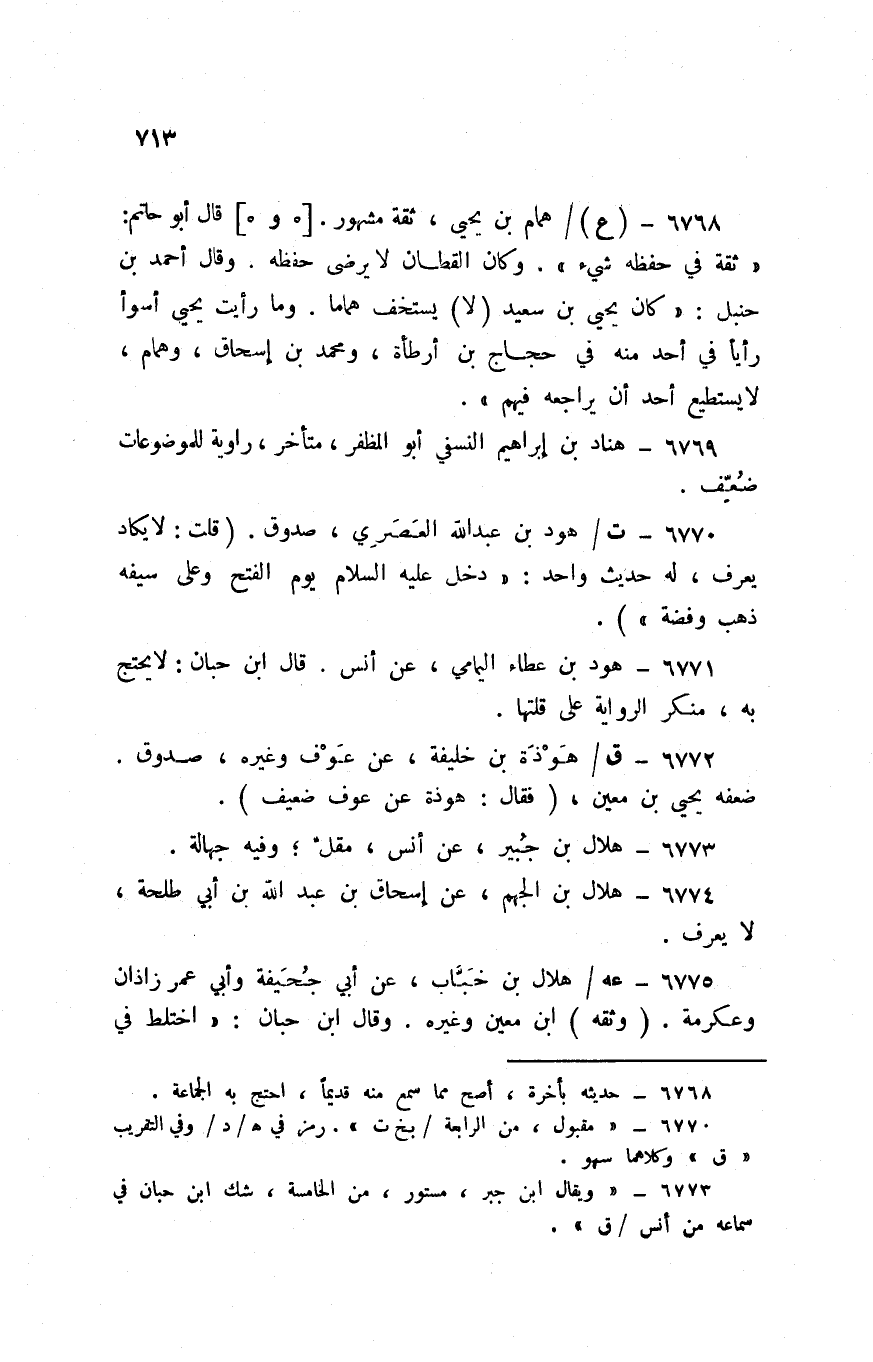 ٧١٣
٦٧٦٨ – (ع)/ همام بن يحيى ، ثقة مشهور . [ه و ه] قال أبو حاتم:
« ثقة في حفظه شيء » . وكان القطان لا يرضى حفظه . وقال أحمد بن
حنبل : « كان يحيى بن سعيد (لا) يستخف هماما . وما رأيت يحيى أسوأ
رأياً في أحد منه في حجاج بن أرطأة ، ومحمد بن إسحاق ، وهمام ،
لايستطيع أحد أن يراجعه فيهم » .
٦٧٦٩ – هناد بن إبراهيم النسفي أبو المظفر ، متأخر ، راوية للموضوعات
ضُعِّف .
٦٧٧٠ – ت/ هود بن عبدالله العَصَرِي ، صدوق . ( قلت : لايكاد
يعرف ، له حديث واحد : « دخل عليه السلام يوم الفتح وعلى سيفه
ذهب وفضة » ) .
٦٧٧١ – هود بن عطاء اليامي ، عن أنس . قال ابن حبان : لايحتج
به ، منكر الرواية على قلتها .
٦٧٧٢ – ق/ هَوْذَة بن خليفة ، عن عَوْف وغيره ، صدوق .
ضعفه يحيى بن معين ، ( فقال : هوذة عن عوف ضعيف ) .
٦٧٧٣ – هلال بن جُبير ، عن أنس ، مقلّ ؛ وفيه جهالة .
٦٧٧٤ – هلال بن الجهم ، عن إسحاق بن عبد الله بن أبي طلحة ،
لا يعرف .
٦٧٧٥ – عه/ هلال بن خَبَّاب ، عن أبي جُحَيفة وأبي عمر زاذان
وعكرمة . ( وثقه ) ابن معين وغيره . وقال ابن حبان : « اختلط في
٦٧٦٨ – حديثه بأخرة ، أصح مما سمع منه قديماً ، احتج به الجماعة .
٦٧٧٠ – « مقبول ، من الرابعة / بخ ت » . رمز في ه/ د/ وفي التقريب
« ق » وكلاهما سهو .
٦٧٧٣ – « ويقال ابن جبر ، مستور ، من الخامسة ، شك ابن حبان في
سماعه من أنس /ق » .